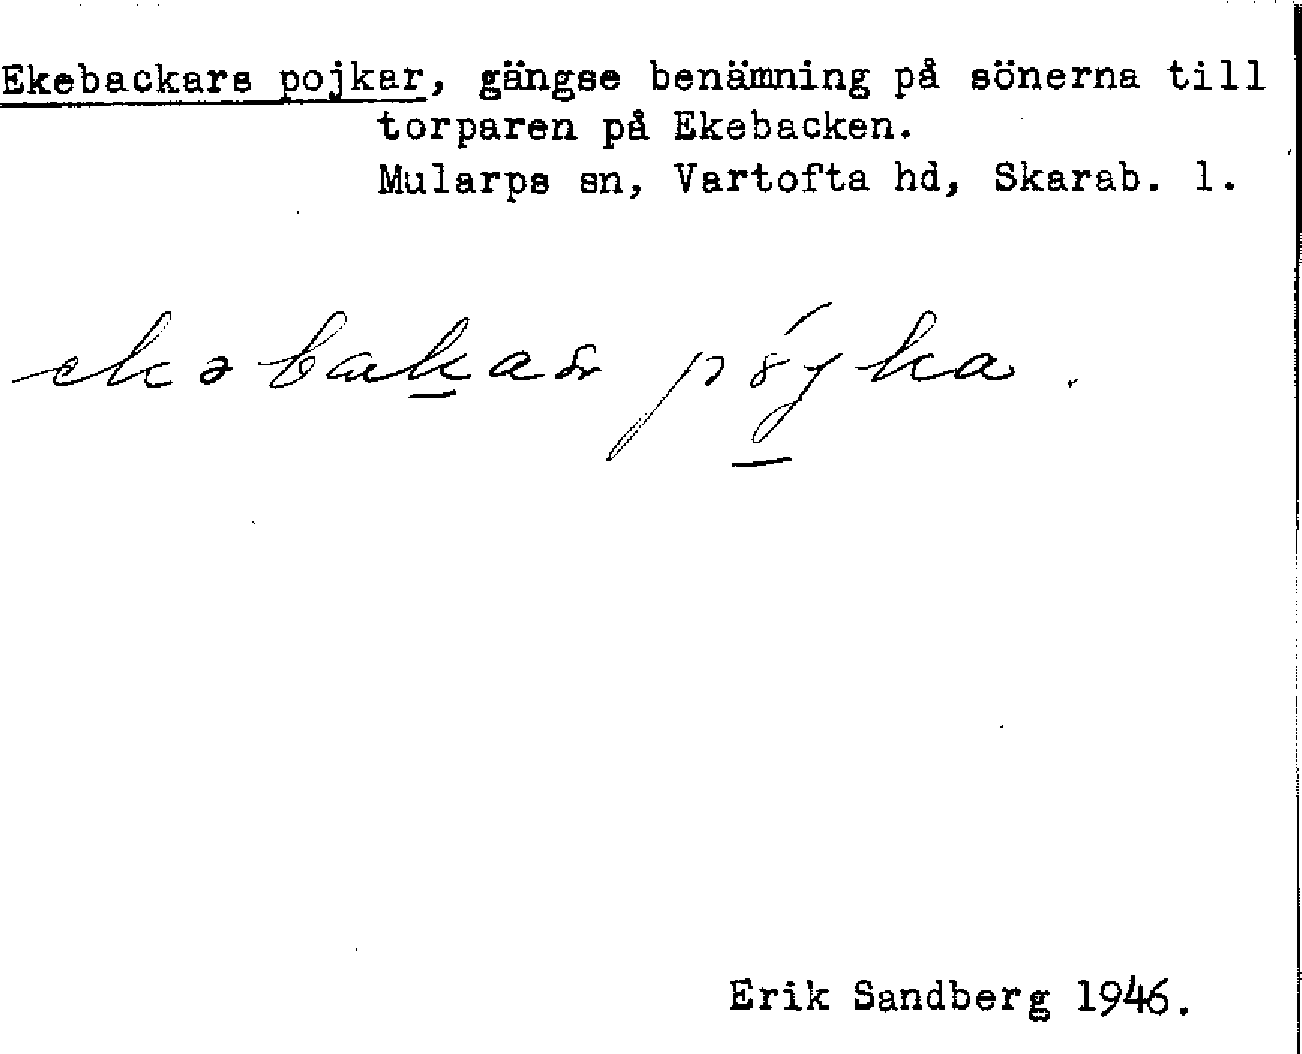 Ekebackars pojkar, gängse benämning på sönerna till
torparen på Ekebacken.
Mularps sn, Vartofta hd, Skarab. l.
Erik Sandberg 1946.